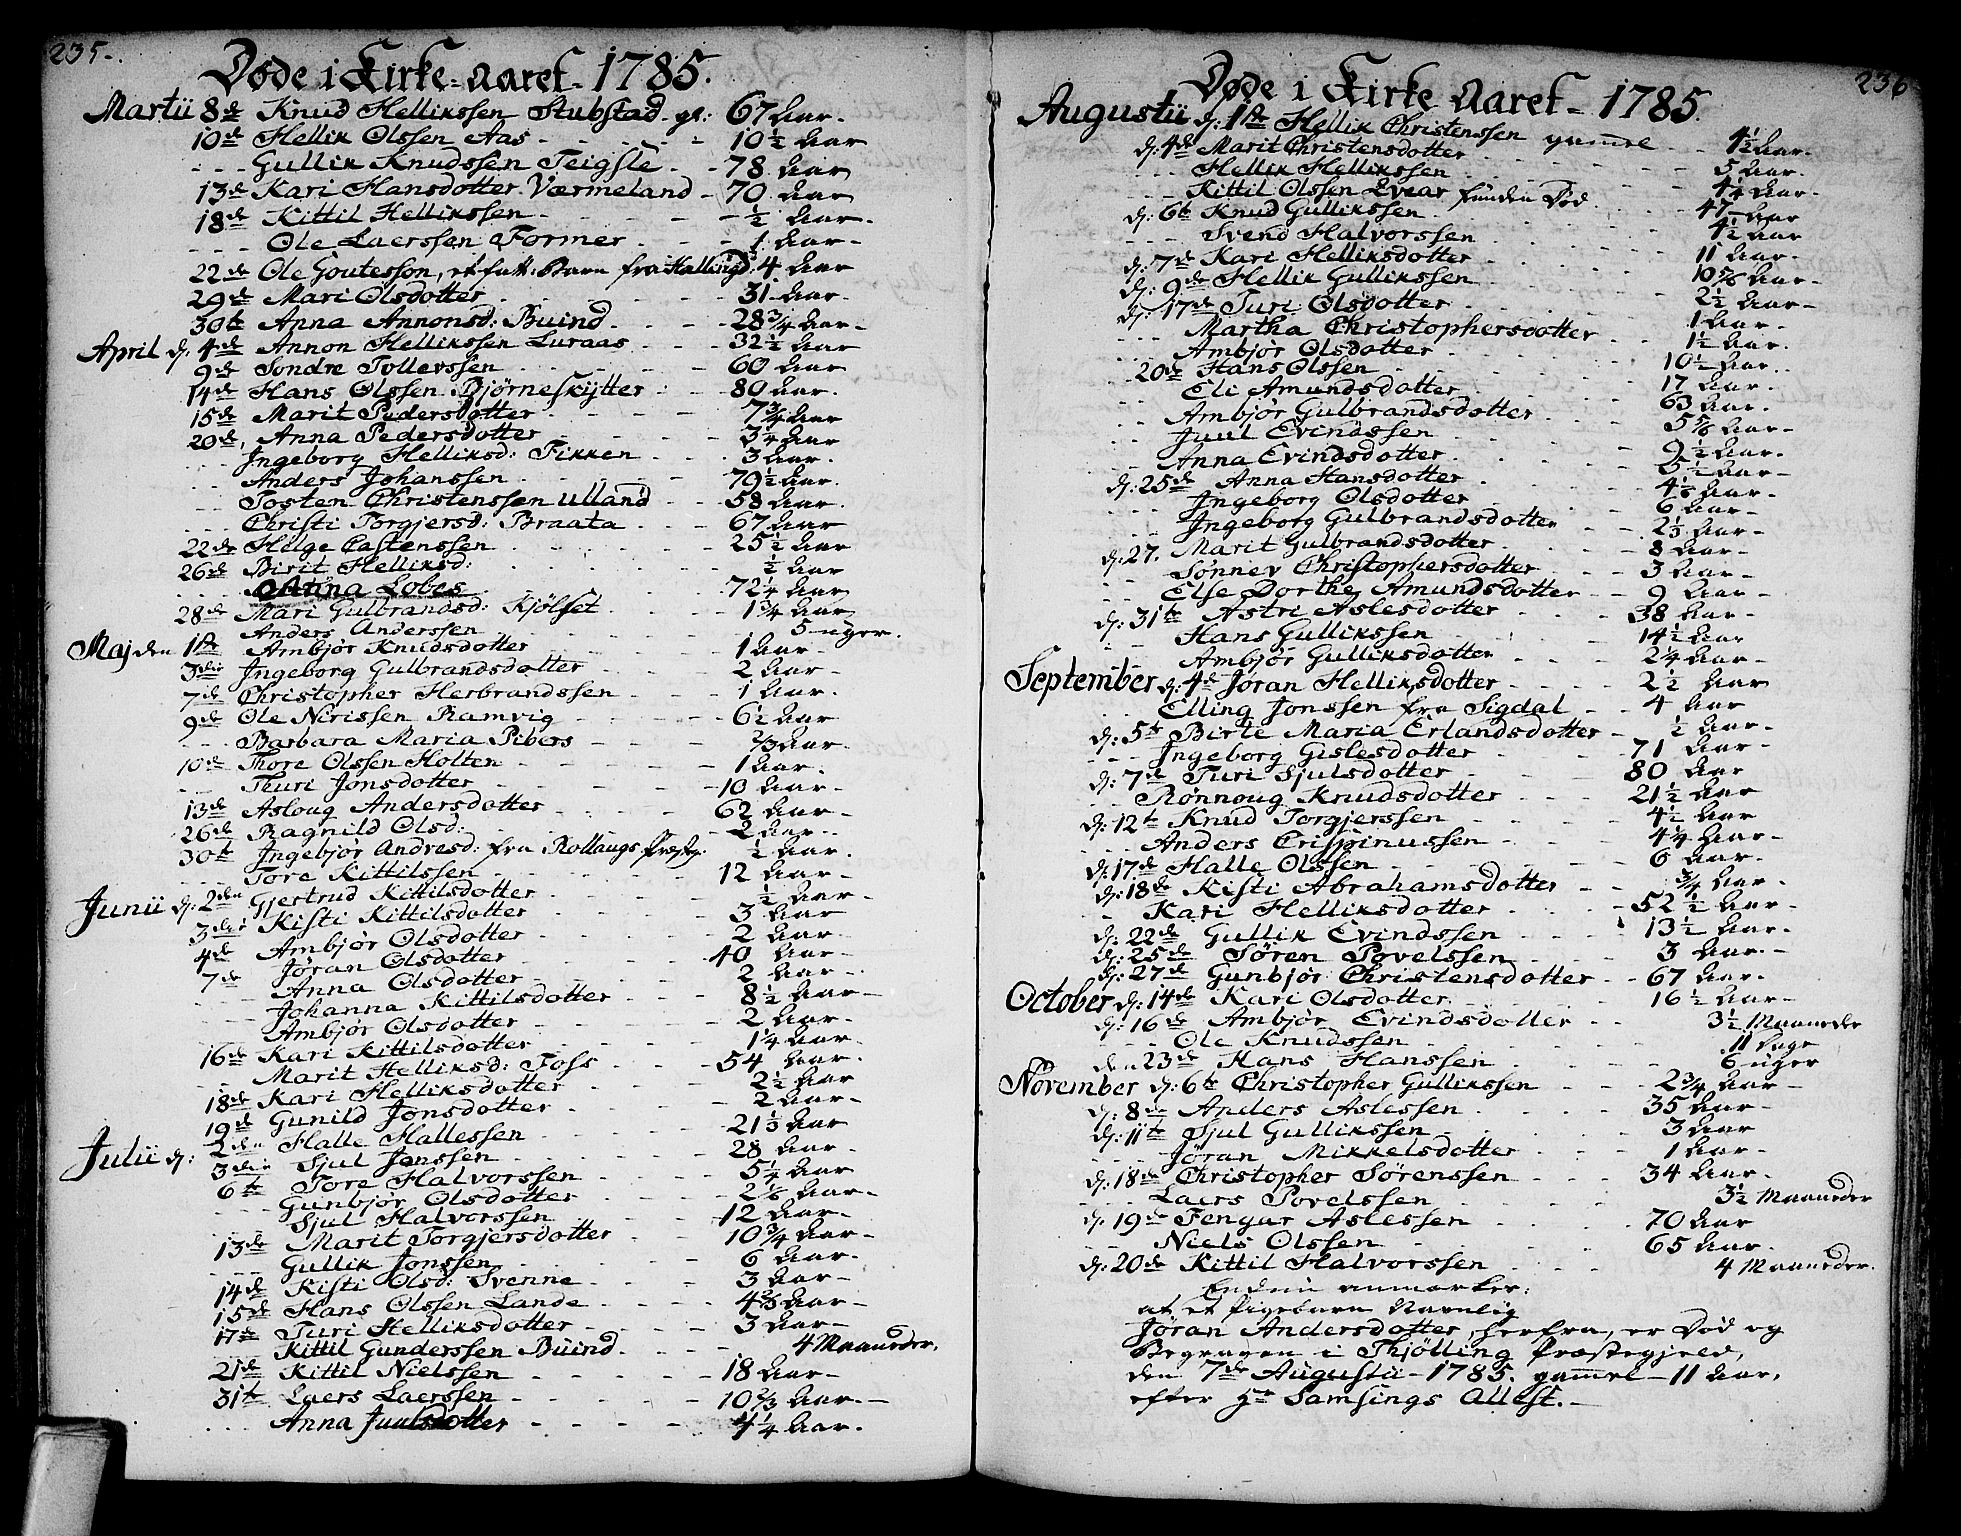 235.
Døde i Kirke-Aaret 1785.
Martii 8de Knud Hellikssen Stubstad gl: 67 Aar.
10de Hellik Olssen Aas 10½ Aar
Gullik Knudssen Teigsle 78 Aar
13de Kari Hansdotter Værmeland 70 Aar
18de Kittil Hellikssen ½ Aar.
Ole Laerssen Tormer 1 Aar
22de Ole Goutesson, et fatt: Barn fra Hallingd: 4 Aar
29de Mari Olsdotter 31 Aar.
30te Anna Annonsd: Buind 28¾ Aar
April d: 4de Annon Hellikssen Luraas 32½ Aar
9de Sondre Tollevssen 60 Aar
14de Hans Olssen Bjørneskytter 80 Aar.
15de Marit Pedersdotter 7¾ Aar
20de, Anna Pedersdotter 3¼ Aar
Ingeborg Helliksd: Fikken 3 Aar.
Anders Johanssen 79½ Aar.
Tosten Christenssen Ulland 58 Aar.
Christi Torgjersd: Braata 67 Aar
22de Helge Castenssen 25½ Aar
26de Birit Helliksd: ½ Aar
Anna Lobes 72¼ Aar
28de Mari Gulbrandsd: Kjølset 1¾ Aar
Anders Anderssen 5 uger.
Maj den 1ste Ambjør Knudsdotter 1 Aar
3die Ingeborg Gulbrandsdotter 2 Aar
7de Christopher Herbrandssen 1 Aar.
9de Ole Nirissen Ramvig 6½ Aar
Barbara Maria Pibers ⅔ Aar.
10de Thore Olssen Holten 1 Aar.
Thuri Jonsdotter 10 Aar
13de Asloug Andersdotter 62 Aar
26de Ragnild Olsd: 2 Aar.
30te Ingebjør Andresd: fra Rollaugs Præstg: ½ Aar.
Tore Kittilssen 12 Aar
Junii d: 2den Gjertrud Kittilsdotter ½ Aar
3die Kisti Kittilsdotter 3 Aar
4de Ambjør Olsdotter 2 Aar
Jøran Olsdotter 40 Aar
7de Anna Olsdotter 2 Aar
Johanna Kittilsdotter 8½ Aar
Ambjør Olsdotter 2 Aar
16de Kari Kittilsdotter 1¼ Aar
Marit Helliksd: Foss 54 Aar.
18de Kari Helliksdotter 2½ Aar
19de Gunild Jonsdotter 2 Aar
Julii d: 2den Halle Hallessen 21⅓ Aar
3die Sjul Jonssen 28 Aar.
6te Tore Halvorssen 5¼ Aar
Gunbjør Olsdotter 2⅙ Aar
Sjul Halvorssen 12 Aar
13de Marit Torgjersdotter 10¾ Aar
Gullik Jonssen 6 Aar
14de Kisti Olsd: Svenne 3 Aar
15de Hans Olssen Lande 4⅔ Aar
17de Turi Helliksdotter 3 Aar
Kittil Gunderssen Buind 4 Maaneder.
21de Kittil Nielssen 18 Aar
31te Laers Laerssen 10⅔ Aar.
Anna Juulsdotter 4¼ Aar.
236
Døde i Kirke Aaret 1785.
Augustii d: 1ste Hellik Christenssen gammel 4½ Aar.
d: 4de Marit Christensdotter 5 Aar.
Hellik Hellikssen 4¼ Aar
Kittil Olssen Qvear funden Død 47 Aar
d: 6te Knud Gullikssen 4½ Aar
Svend Halvorssen 11 Aar.
d: 7de Kari Helliksdotter 10⅚ Aar
d: 9de Hellik Gullikssen 2½ Aar
d: 17de Turi Olsdotter 1 Aar.
Martha Christophersdotter 1½ Aar.
Ambjør Olsdotter 10½ Aar.
20de Hans Olssen 17 Aar.
Eli Amundsdotter 63 Aar.
Ambjør Gulbrandsdotter 5⅚ Aar
Juul Evindssen 9½ Aar.
Anna Evindsdotter 5½ Aar
d: 25de Anna Hansdotter 4½ Aar.
Ingeborg Olsdotter 6 Aar
Ingeborg Gulbrandsdotter 2⅓ Aar
d: 27. Marit Gulbrandsdotter 8 Aar
Sønnev Christophersdotter 3 Aar
Else Dorthe Amundsdotter 9 Aar
d: 31te Astri Aslesdotter 38 Aar
Hans Gullikssen 14½ Aar
Ambjør Gulliksdotter 2¼ Aar
September d: 4de Jøran Helliksdotter 2½ Aar
Elling Jonssen fra Sigdal 4 Aar
d: 5te Birte Maria Erlandsdotter ½ Aar
Ingeborg Gislesdotter 71 Aar
d: 7de Turi Sjulsdotter 80 Aar
Rønnoug Knudsdotter 21½ Aar
d: 12te Knud Torgjerssen 4½ Aar
Anders Crispinussen 4¼ Aar
d: 17de Halle Olssen 6 Aar.
d: 18de Kisti Abrahamsdotter ¾ Aar.
Kari Helliksdotter 52½ Aar
d: 22de Gullik Evindssen 13½ Aar
d: 25de Søren Povelssen 3 Aar
d: 27de Gunbjør Christensdotter 67 Aar.
October d: 14de Kari Olsdotter 16½ Aar
d: 16de Ambjør Evindsdotter 3½ Maaneder
Ole Knudssen 11 Dage
den 23de Hans Hanssen 6 uger
November d: 6te Christopher Gullikssen 2¾ Aar
d: 8de Anders Aslessen 35 Aar
d: 11te Sjul Gullikssen 3 Aar
Jøran Mikkelsdotter 1 Aar.
d: 18de Christopher Sørenssen 34 Aar.
Laers Povelssen 3½ Maaneder
d: 19de Fengar Aslessen 70 Aar
Niels Olssen 65 Aar.
d: 20de Kittil Halvorssen 4 Maaneder.
Endnu anmærkes:
at et Pigebarn Navnlig
Jøran Andersdotter, herfra, er Død og
Begraven i Thjølling Præstegjeld,
den 7de Augustii 1785. gammel 11 Aar.
efter Hr Samsings Attest.